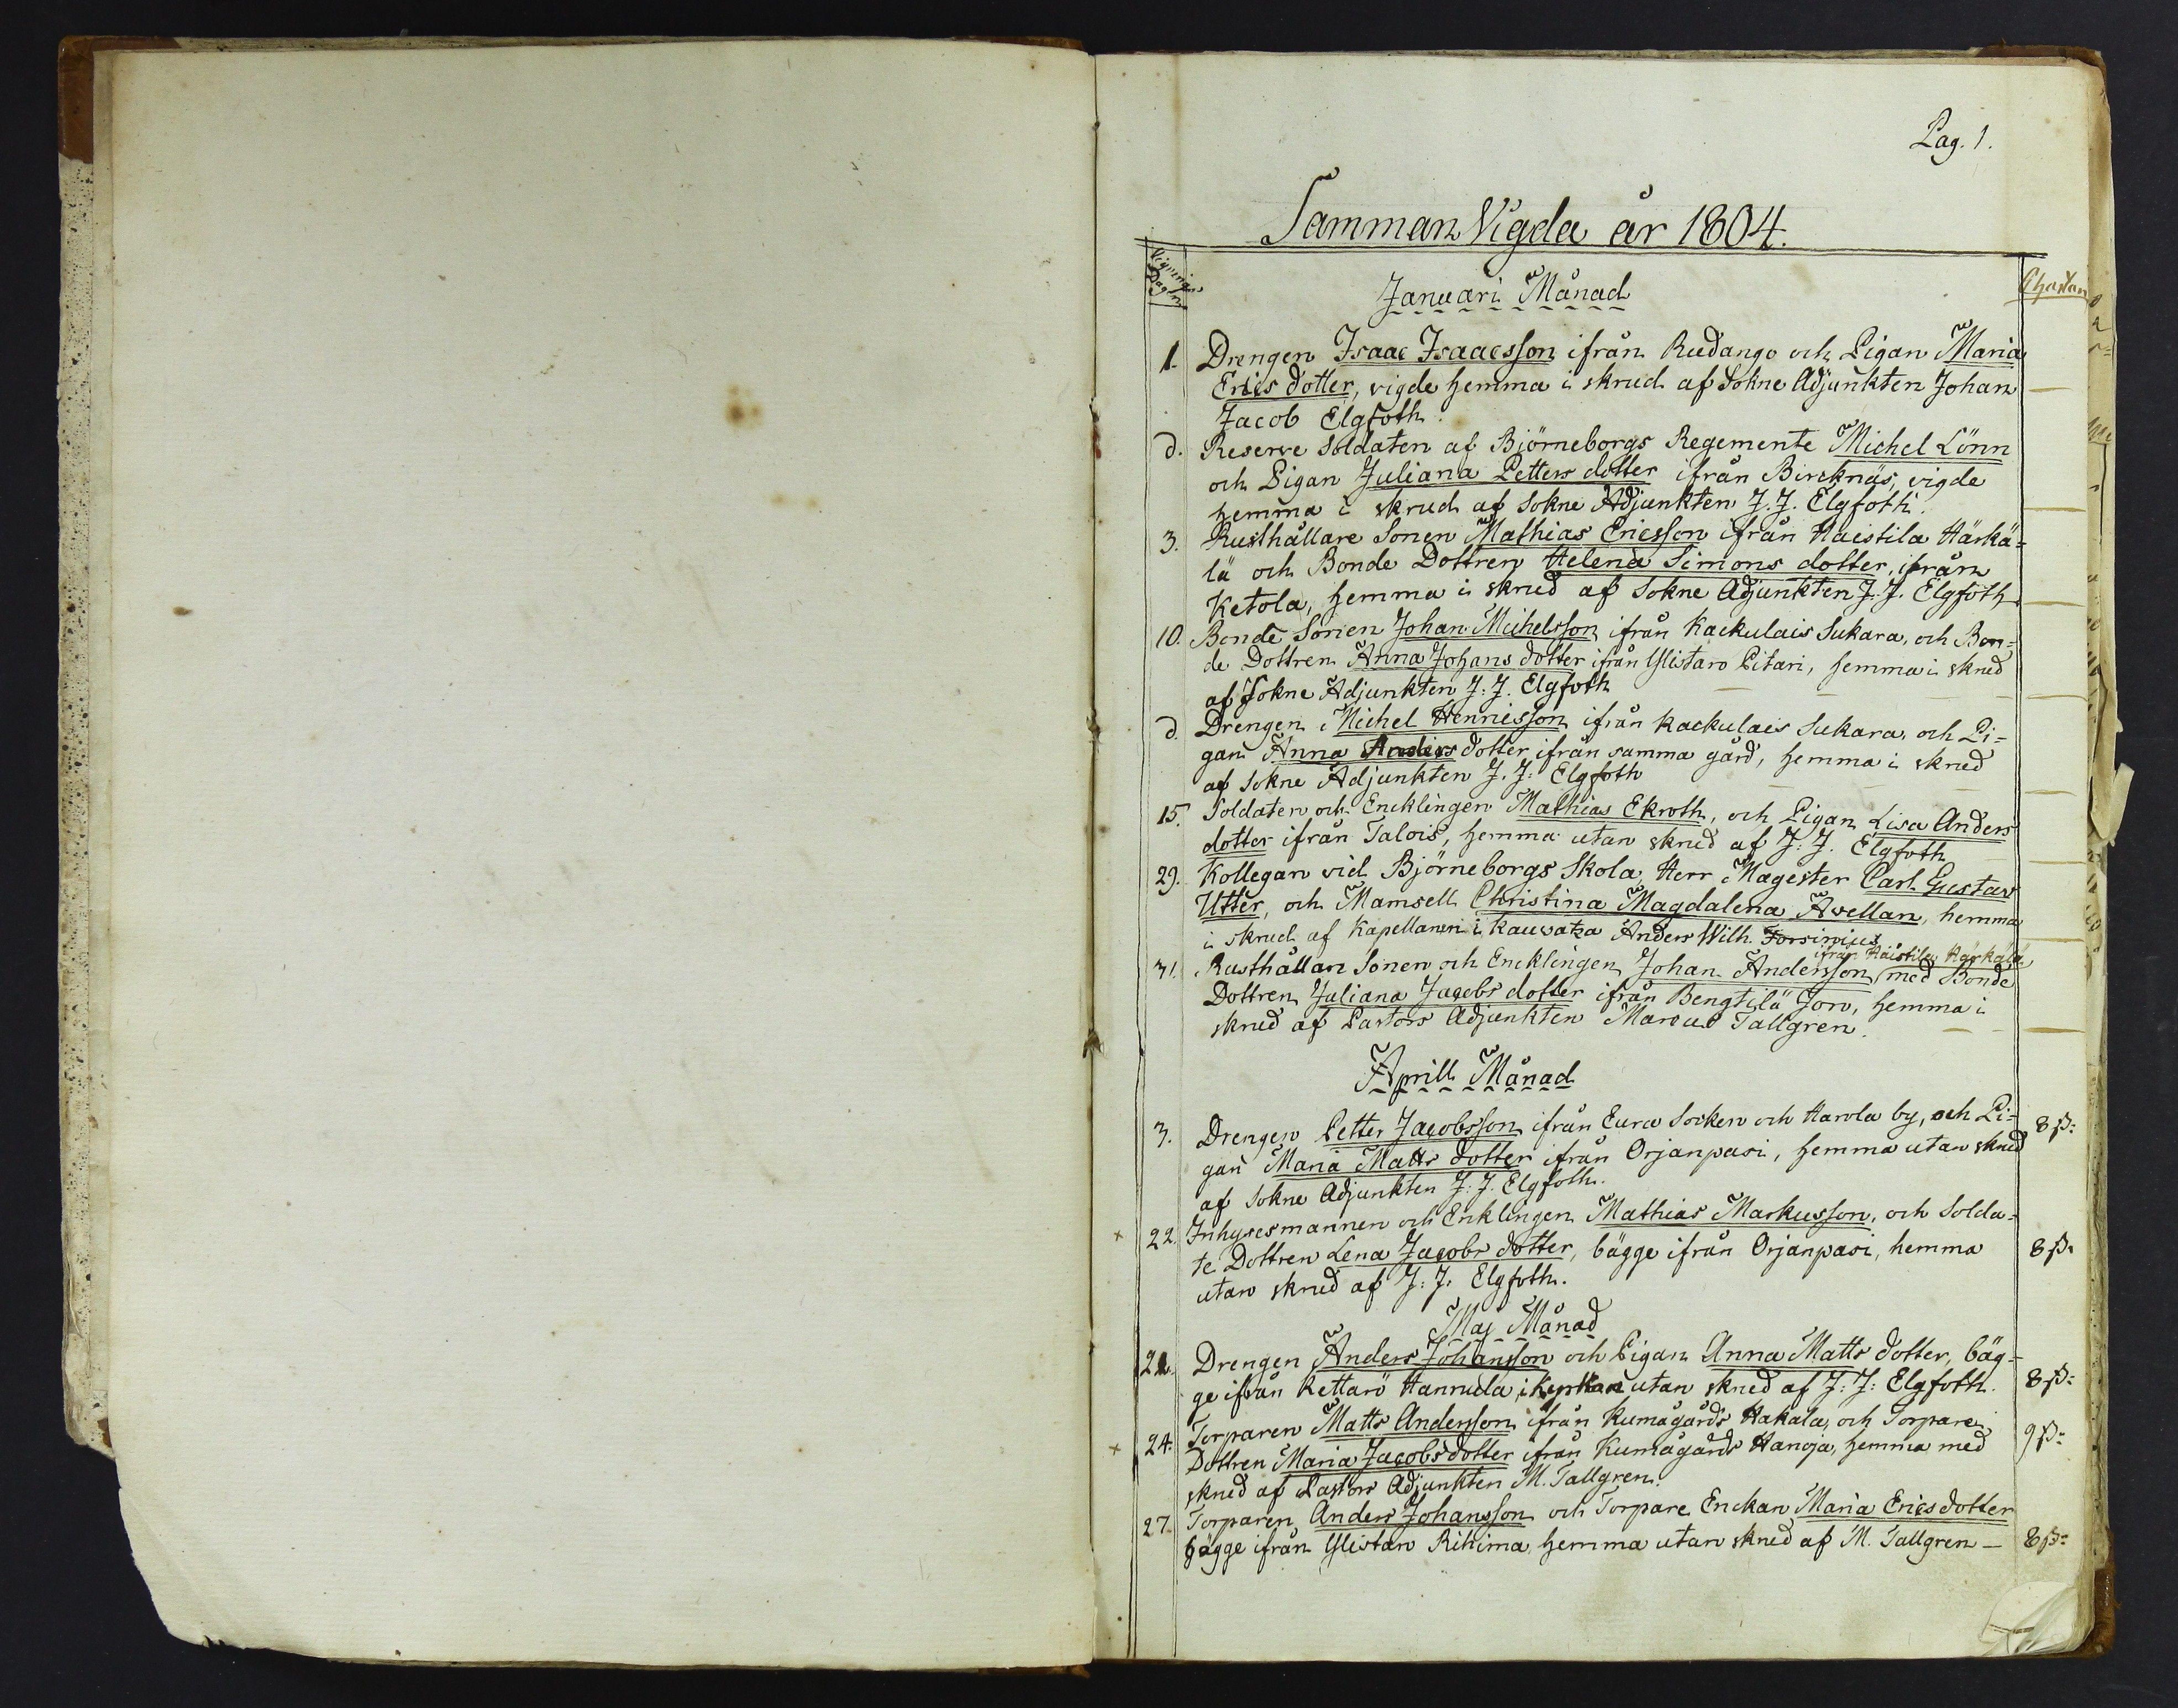 Pag. 1.
Samman Vigda år 1804.
Vignings Dagen
Januari Månad
Chartan
1. Drengen Isaac Isaacsson ifrån Rudango och Pigan Maria
Erics dotter, vigde hemma i skrud af Sokne Adjunkten Johan
Jacob Elgfoth.
d. Reserve Soldaten af Björneborgs Regemente Michel Lönn
och Pigan Juliana Petters dotter ifrån Bircknäs, vigde
hemma i skrud af Sokne Adjunkten J. J. Elgfoth.
3. Rusthållare Sonen Mathias Ericsson ifrån Haistila Härkä=
lä och Bonde Dottren Helena Simons dotter, ifrån
Ketola, hemma i skrud af Sokne Adjunkten J. J. Elgfoth
10. Bonde Sonen Johan Michelsson ifrån Kackulais Sukara, och Bon=
de Dottren Anna Johans dotter ifrån Ylistaro Pitari, hemma i skrud
af Sokne Adjunkten J. J. Elgfoth
d. Drengen Michel Henricsson ifrån Kackulais Sukara, och Pi=
gan Anna Anders dotter ifrån samma gård, hemma i skrud
af Sokne Adjunkten J. J. Elgfoth
15. Soldaten och Encklingen Mathias Ekroth, och Pigan Lisa Anders
dotter ifrån Talois, hemma utan skrud af J. J. Elgfoth
29. Kollegan vid Björneborgs Skola, Herr Magister Carl Gustav
Utter, och Mamsell Christina Magdalena Avellan, hemma
i skrud af Kapellanen i Kauvatsa Anders Wilh. Forsinius
ifrån Haistila Härkälä
31. Rusthållare Sonen och Encklingen Johan Andersson med Bonde
Dottren Juliana Jacobs dotter ifrån Bengtilä Joro, hemma i
skrud af Pastors Adjunkten Marcus Tallgren.
Aprill Månad
3. Drengen Petter Jacobsson ifrån Eura Socken och Harola by, och Pi= 8 ß:
gan Maria Matts dotter ifrån Orjanpasi, hemma utan skrud
af Sokne Adjunkten J. J. Elgfoth.
+ 22. Inhysesmannen och Enklingen Mathias Markusson, och Solda=
te Dottren Lena Jacobs dotter, bägge ifrån Orjanpasi, hemma 8 ß:
utan skrud af J. J. Elgfoth.
Maj Månad
21. Drengen Anders Johansson och Pigan Anna Matts dotter, bäg=
ge ifrån Kettarö Hannula, i Kyrkan utan skrud af J: J: Elgfoth. 8 ß:
+ 24. Torparen Matts Andersson ifrån Kumågårds Hakala, och Torpare 9 ß:
Dottren Maria Jacobs dotter ifrån Kumågårds Hanoja, hemma med
skrud af Pastors Adjunkten M. Tallgren.
27. Torparen Anders Johansson och Torpare Enckan Maria Erics dotter
bägge ifrån Ylistaro Rihima, hemma utan skrud af M. Tallgren — 8 ß: